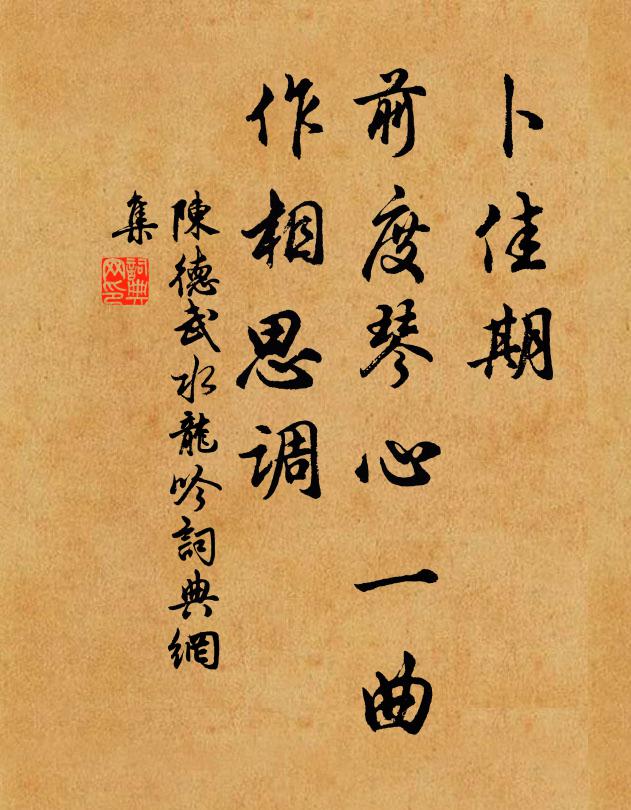 卜佳期
前度琴心一曲
作相思調
陳德武水龍吟詞典網
集
詞典
网印